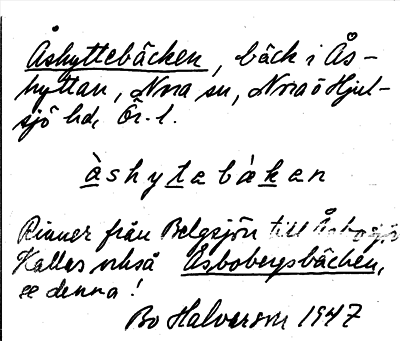 Åshyttebäcken, bäck i Ås-
hyttan, Nora sn, Nora o Hjul-
sjö hd, Ör. l.
àshytabàkan
Rinner från Belgsjön till
Kallas också Åsbobergsbäcken,
se denna!
Bo Halverson 1947